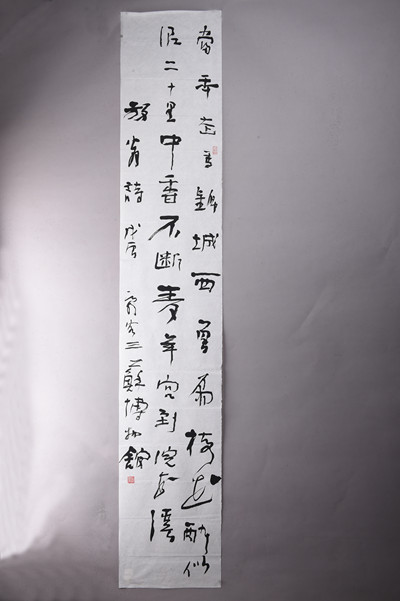 當年走馬錦城西曾為梅花醉似
泥二十里中香不斷青羊宮到浣花溪
放翁詩 戊辰 三蘇博物館